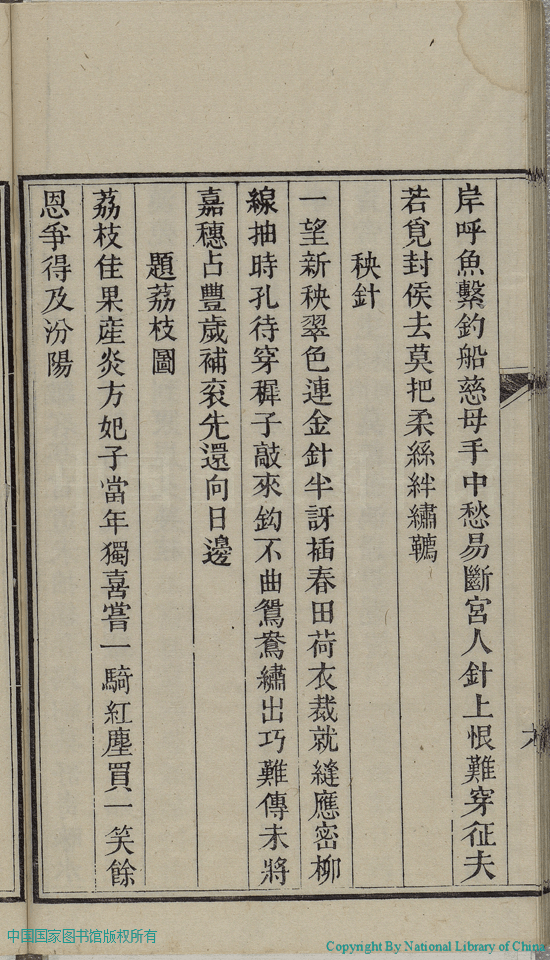 岸呼魚繫釣船慈母手中愁易斷宮人針上恨難穿征夫
若覓封侯去莫把柔絲絆繡韉
秧針
一望新秧翠色連金針半訝插春田荷衣裁就縫應密柳
線抽時孔待穿穉子敲來鈎不曲鴛鴦繡出巧難傳未將
嘉穗占豐歲補衮先還向日邊
題荔枝圖
荔枝佳果產炎方妃子當年獨喜嘗一騎紅塵買一笑餘
恩爭得及汾陽
中国国家图书馆版权所有
Copyright By National Library of China